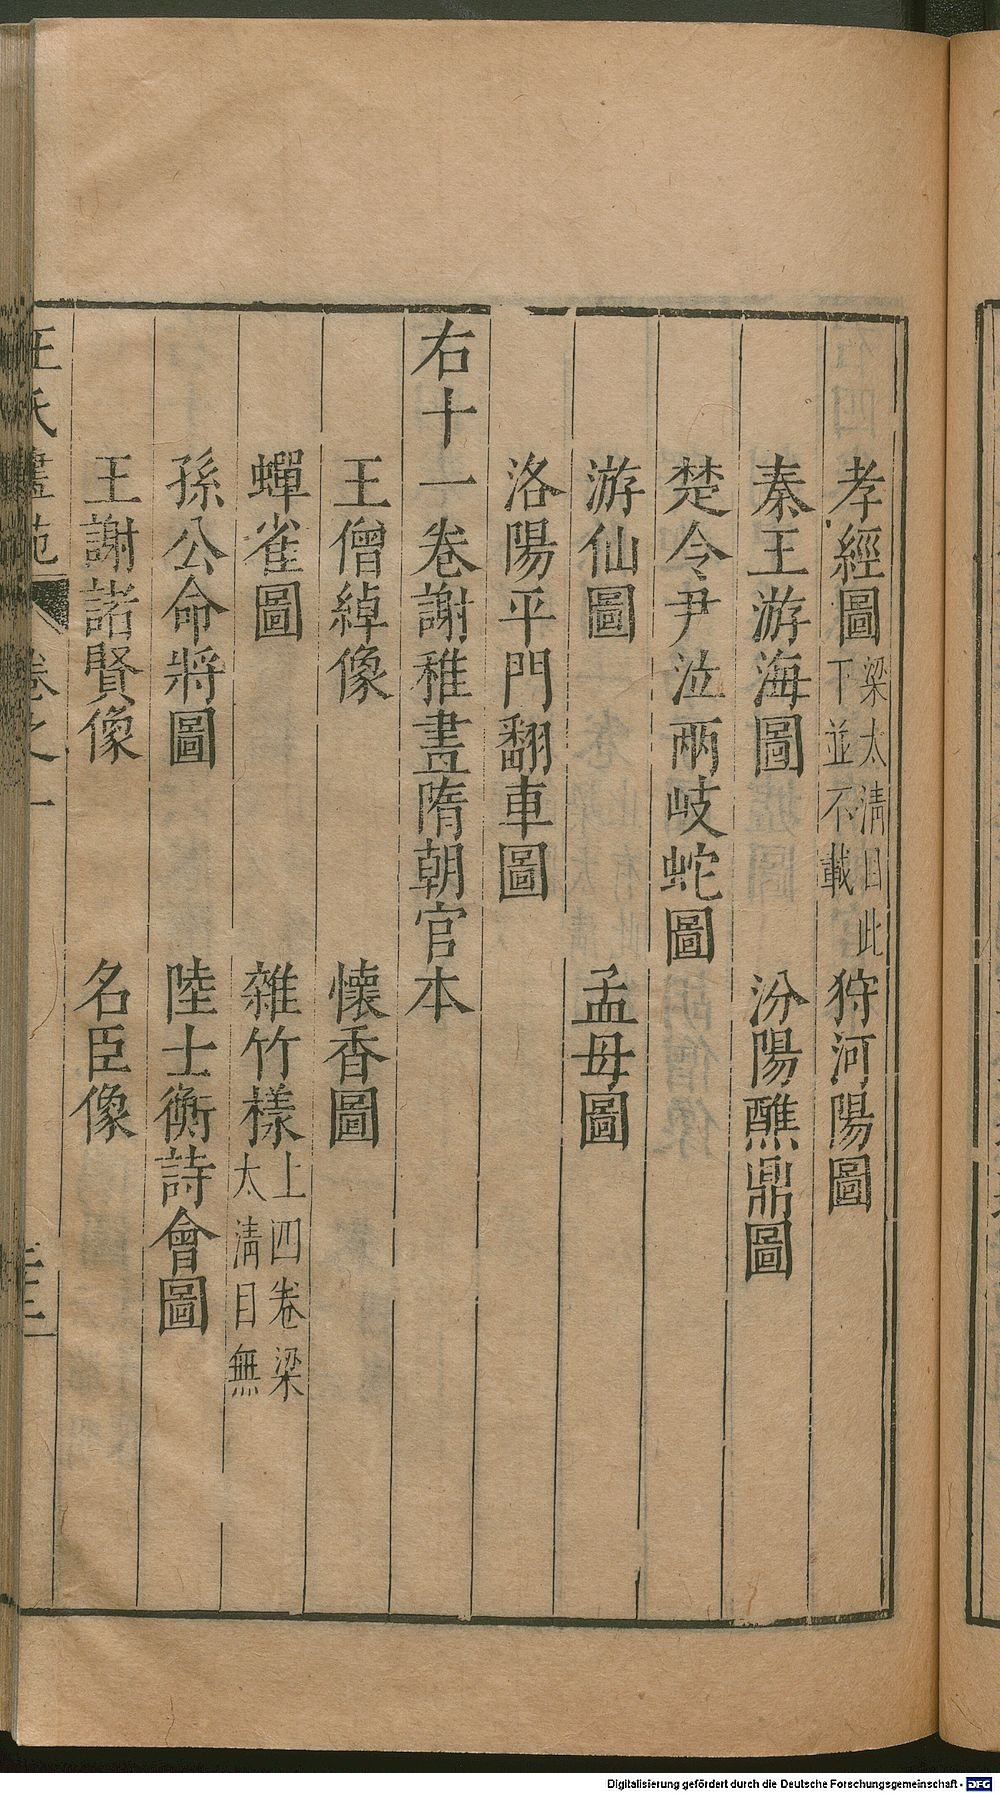 孝經圖 梁太淸目此下並不載 狩河陽圖
秦王游海圖 汾陽醮鼎圖
楚令尹泣兩岐蛇圖
游仙圖 孟母圖
洛陽平門翻車圖
右十一卷謝稚畫隋朝官本
王僧綽像 懷香圖
蟬雀圖 雜竹樣 上四卷梁太淸目無
孫公命將圖 陸士衡詩會圖
王謝諸賢像 名臣像
王氏畫苑 卷之一
Digitalisierung gefördert durch die Deutsche Forschungsgemeinschaft - DFG